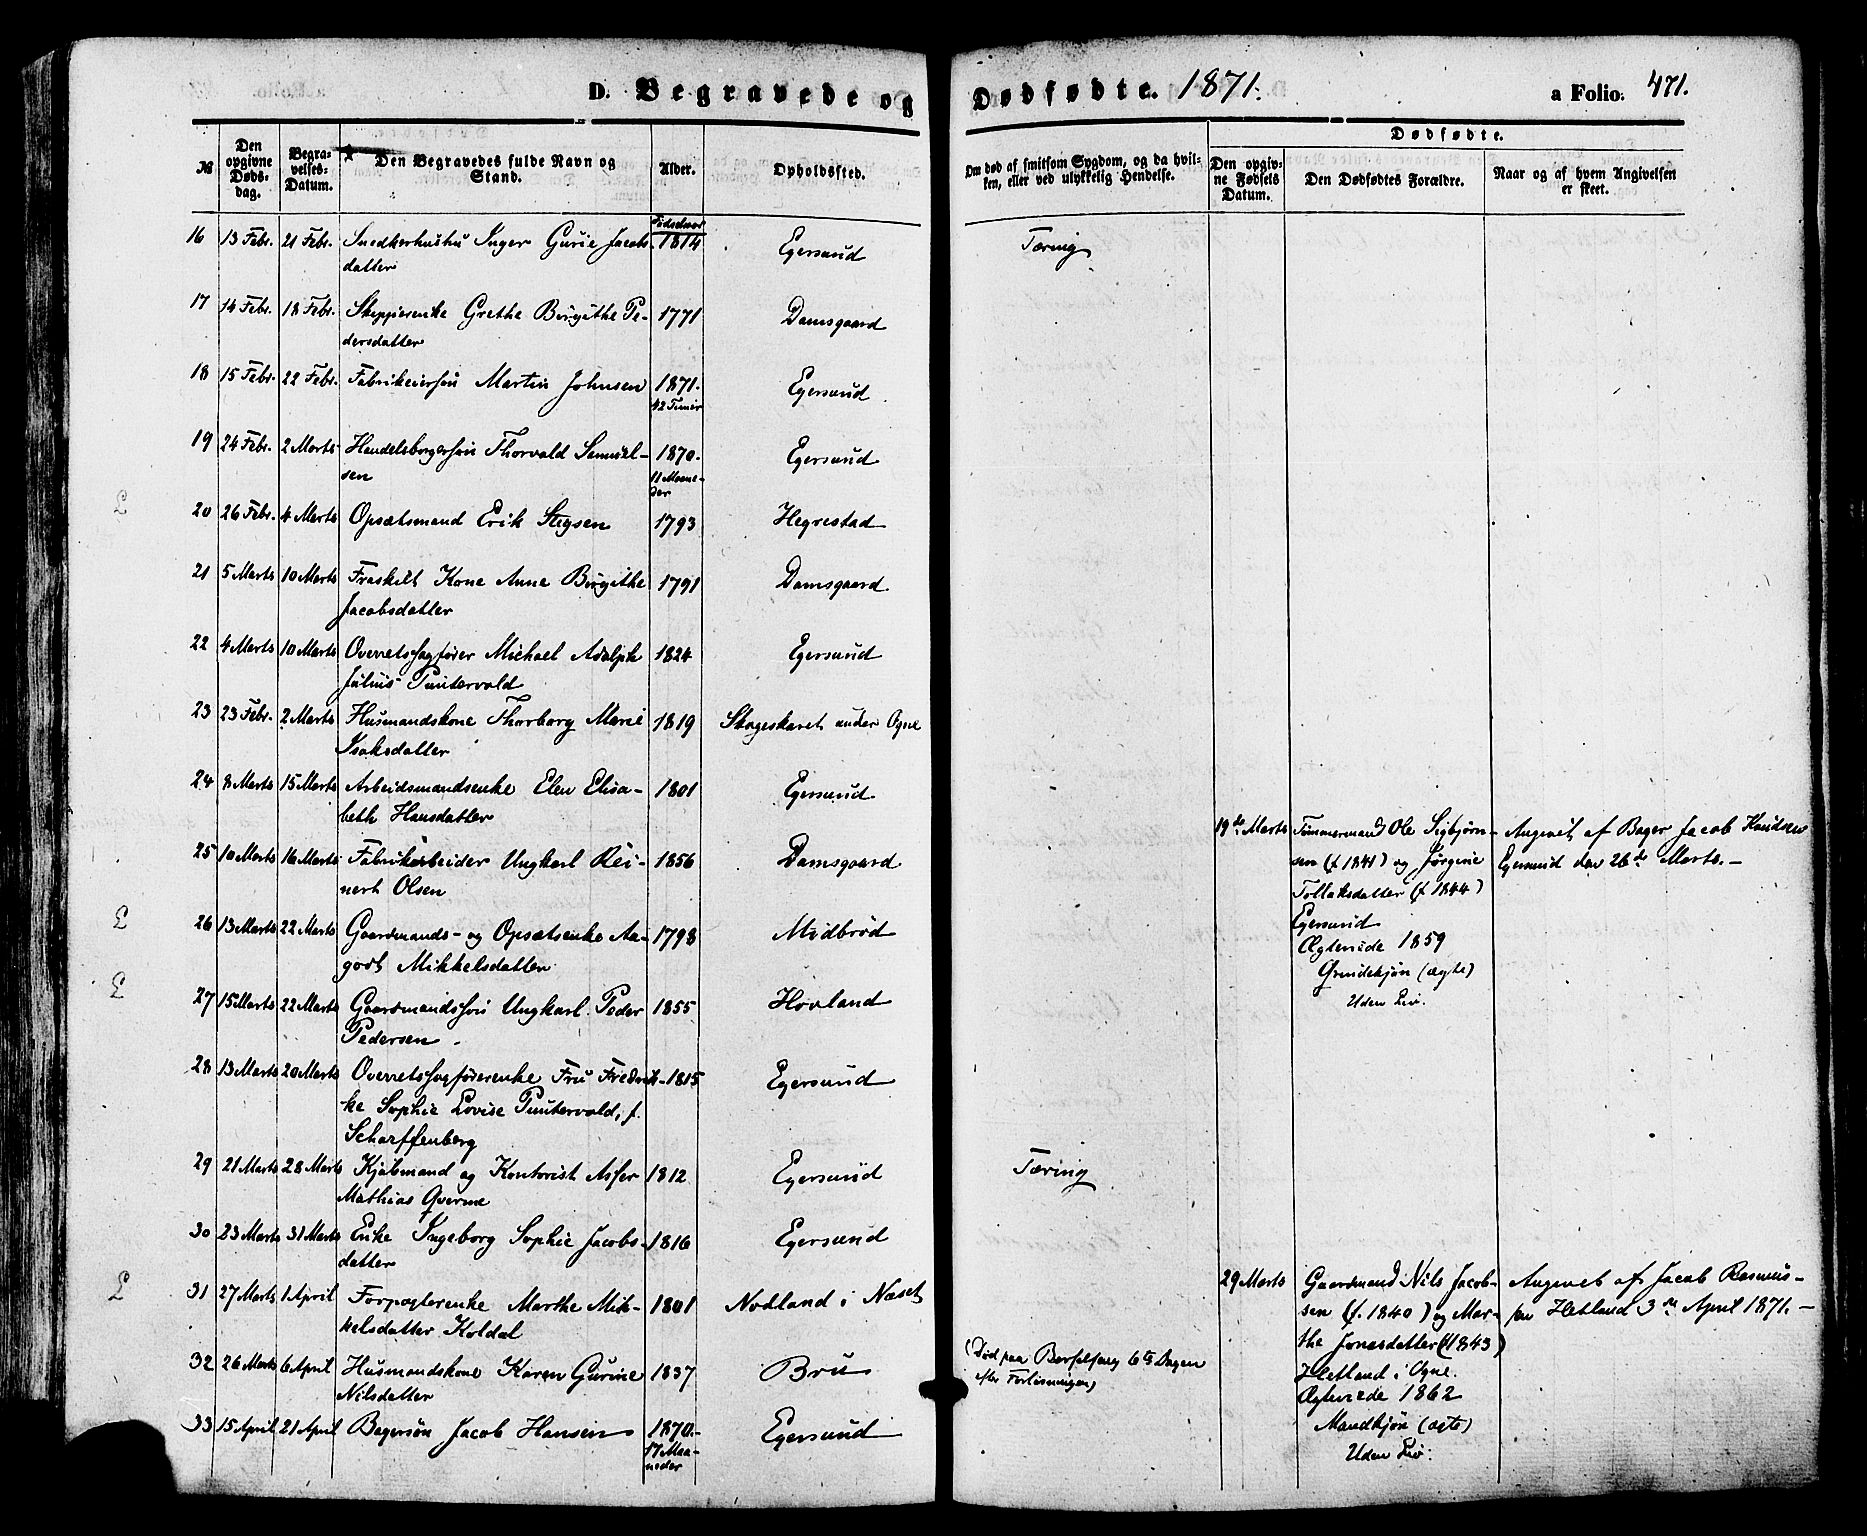 D. Begravede og Dødfødte. 1871. a Folio. 471.
№
Den opgivne Døds-dag.
Begra-velses-Datum.
Den Begravedes fulde Navn og Stand.
Alder.
Opholdssted.
Om død af smitsom Sygdom, og da hvil-
ken, eller ved ulykkelig Hendelse.
Dødfødte.
Den opgiv-ne Fødsels Datum.
Den Dødfødtes Forældre.
Naar og af hvem Angivelsen er skeet.
Fødselsaar
16 13 Febr. 21 Febr. Snedkerhustru Inger Gurie Jacobs- 1814 Egersund Tæring
datter
17 14 Febr. 18 Febr. Skipperenke Grethe Birgithe Pe- 1771 Damsgaard
dersdatter
18 15 Febr. 22 Febr. Fabrikeiersøn Martin Johnsen 1871. Egersund
42 Timer
19 24 Febr. 2 Marts Handelsborgersøn Thorvald Samuel- 1870. Egersund
sen 11 Maane-
der
20 26 Febr. 4 Marts Opsætsmand Erik Stegsen 1793 Hegrestad
21 5 Marts 10 Marts Fraskilt Kone Anne Birgithe 1791 Damsgaard
Jacobsdatter
22 4 Marts 10 Marts Overretssagfører Michael Adolph 1824 Egersund
Julius Puntervold
23 23 Febr. 2 Marts Husmandskone Thorborg Marie 1819 Skageskaret under Ogne
Isaksdatter
24 8 Marts 15 Marts Arbeidsmandsenke Elen Elisa- 1801 Egersund
beth Hansdatter
25 10 Marts 16 Marts Fabrikarbeider Ungkarl Rei- 1856 Damsgaard
nert Olsen
26 13 Marts 22 Marts Gaardmands- og Opsætsenke Aa- 1798 Midbrød
got Mikkelsdatter
27 15 Marts 22 Marts Gaardmandssøn Ungkarl Peder 1855 Hovland
Pedersen
28 13 Marts 20 Marts Overretssagførerenke Fru Fredri- 1815 Egersund
ke Sophie Lovise Puntervold, f.
Scharffenberg
29 21 Marts 28 Marts Kjøbmand og Kontorist Asser 1812 Egersund Tæring
Mathias Qverme
30 23 Marts 31 Marts Enke Ingeborg Sophie Jacobs- 1816 Egersund
datter
31 27 Marts 1 April Forpagterenke Marthe Mik- 1801 Nodland i Næset
kelsdatter Koldal
32 26 Marts 6 April Husmandskone Karen Gurine 1837 Bru (Død paa Barselseng 6te Dagen
Nilsdatter efter Forløsningen)
33 15 April 21 April Bagersøn Jacob Hansen 1870. Egersund
17 Maa-
neder
19de Marts Tømmermand Ole Sigbjørn- Angivet af Bager Jacob Knudsen
sen (f. 1841) og Jørgine Egersund den 26de Marts.
Tollaksdatter (f 1844)
Egersund
Ægteviede 1859
Qvindekjøn (ægte)
Uden Liv.
29 Marts Gaardmand Nils Jacob- Angivet af Jacob Rasmus-
sen (f. 1840) og Mar- sen Hetland 3de April 1871.
the Jonasdatter (1843)
Hetland i Ogne.
Ægteviede 1862
Mandkjøn (ægte)
Uden Liv.